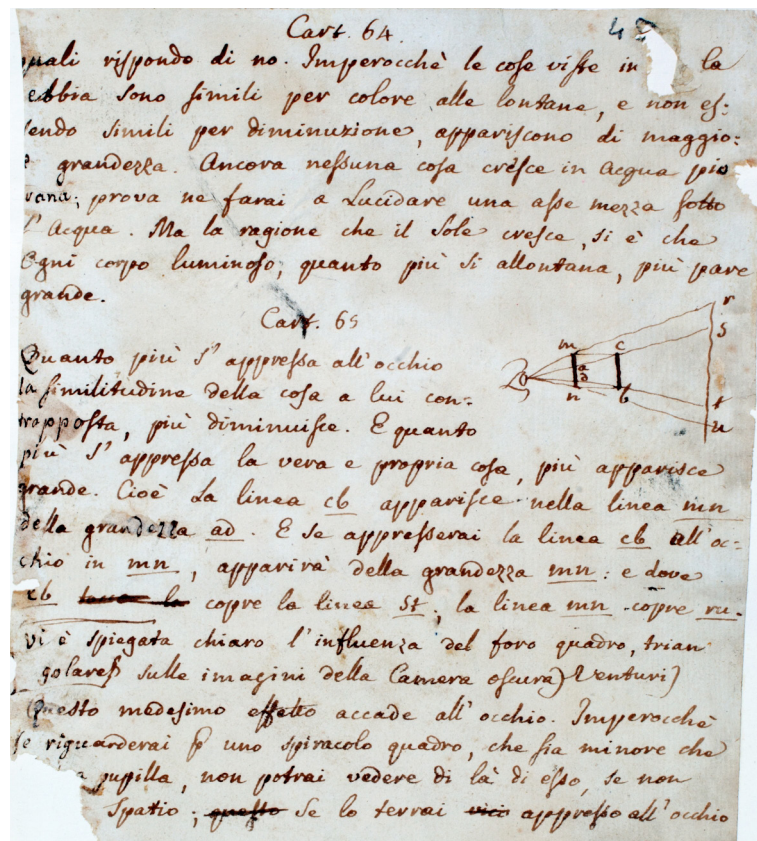 Cart. 64. 45
quali rispondo di no. Imperocchè le cose viste in la
ebbia sono simili per colore alle lontane, e non es:
sendo simili per diminuzione, appariscono di maggio:
e grandezza. Ancora nessuna cosa cresce in Acqua pio
vana; prova ne farai a Lucidare una asse mezza sotto
l'Acqua. Ma la ragione che il Sole cresce, si è che
Ogni corpo luminoso, quanto più si allontana, più pare
grande.
Cart. 65
Quanto più s'appressa all'occhio
la similitudine della cosa a lui con:
trapposta, più diminuisce. E quanto
più s'appressa la vera e propria cosa, più apparisce
grande. Cioè La linea cb apparisce nella linea mn
della grandezza ad. E se appresserai la linea cb all'oc:
chio in mn, apparirà della grandezza mn: e dove
cb copre la linea st; la linea mn copre ru.
vi è spiegata chiaro l'influenza del foro quadro, trian
golare sulle imagini della Camera oscura) Venturi)
Questo medesimo effetto accade all'occhio. Imperocchè
se riguarderai p uno spiracolo quadro, che sia minore che
pupilla, non potrai vedere di là di esso, se non
spatio; questo Se lo terrai vici appresso all'occhio
m c r
s
a
d
n b t
u